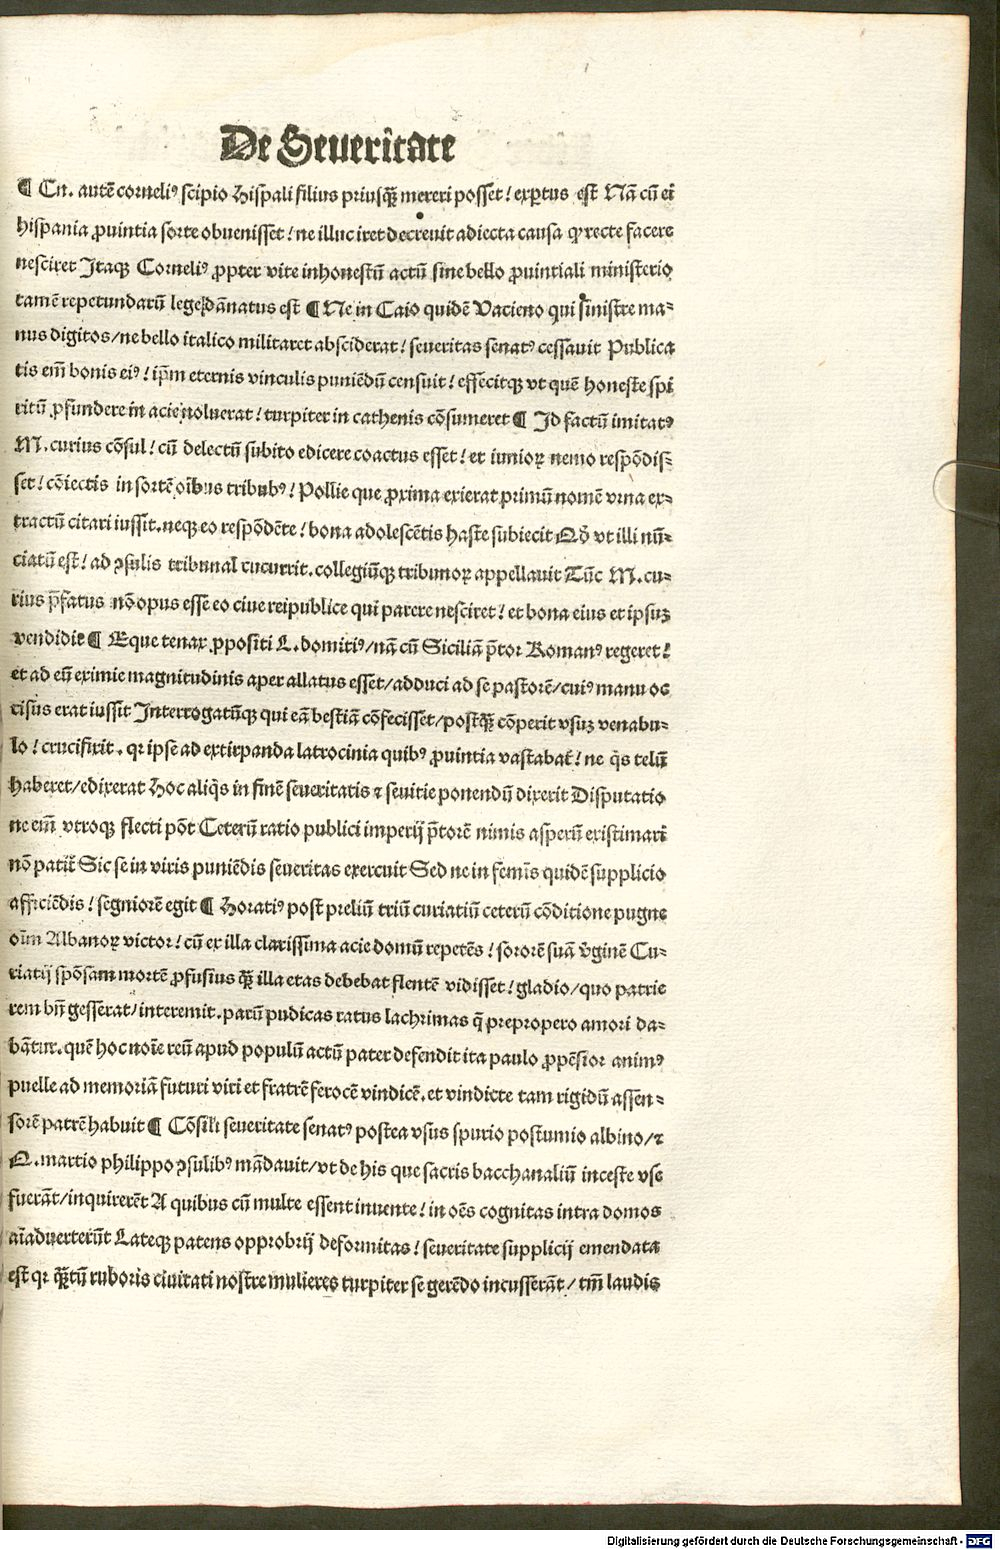 De Seueritate
¶ Cn. autē corneliꝰ scipio Hispali filius priusq̃ mereri posset! exꝑtus est Nā cū ei
hispania ꝓuintia sorte obuenisset! ne illuc iret decreuit adiecta causa ꝙ recte facere
nesciret Itaqꝫ Corneliꝰ ꝓpter vite inhonestū actū sine bello ꝓuintiali ministerio
tamē repetundarū lege dānatus est ¶ Ne in Caio quidē Vacieno qui sinistre ma⸗
nus digitos/ne bello italico militaret absciderat! seueritas senatꝰ cessauit Publica
tis em̄ bonis eiꝰ! ip̄m eternis vinculis puniēdū censuit! effecitqꝫ vt quē honeste spi
ritū ꝓfundere in acie noluerat! turpiter in cathenis cōsumeret ¶ Id factū imitatꝰ
M. curius cōsul! cū delectū subito edicere coactus esset! et iunioꝝ nemo respōdis⸗
set! cōiectis in sortē oībus tribubꝰ! Pollie que ꝓxima exierat primū nomē vrna ex⸗
tractū citari iussit. neqꝫ eo respōdēte! bona adolescētis haste subiecit Qḋ vt illi nū⸗
ciatū est! ad ꝯsulis tribunal cucurrit. collegiūqꝫ tribunoꝝ appellauit Tūc M. cu⸗
rius p̄fatus nō opus esse eo ciue reipublice qui parere nesciret! et bona eius et ipsuꝫ
vendidit ¶ Eque tenax ꝓpositi L. domitiꝰ/nā cū Siciliā p̄tor Romanꝰ regeret!
et ad eū eximie magnitudinis aper allatus esset/adduci ad se pastorē/cuiꝰ manu oc
cisus erat iussit Interrogatūqꝫ qui eā bestiā cōfecisset/postq̃ cōperit vsuꝫ venabu⸗
lo! crucifixit. qꝛ ipse ad extirpanda latrocinia quibꝰ ꝓuintia vastabat̄! ne q̇s telū
haberet/edixerat Hoc aliq̇s in finē seueritatis ⁊ seuitie ponendū dixerit Disputatio
ne em̄ vtroqꝫ flecti pōt Ceterū ratio publici imperij p̄torē nimis asperū existimari
nō patit̄ Sic se in viris puniēdis seueritas exercuit Sed ne in femīs quidē supplicio
afficiēdis! segniorē egit ¶ Horatiꝰ post preliū triū curiatiū ceterū cōditione pugne
oīm Albanoꝝ victor! cū ex illa clarissima acie domū repetēs! sororē suā v̇ginē Cu⸗
riatij spōsam mortē ꝓfusius q̃ illa etas debebat flentē vidisset! gladio/quo patrie
rem bn̄ gesserat/interemit. parū pudicas ratus lachrimas q̄ prepropero amori da⸗
bāntur. quē hoc noīe reū apud populū actū pater defendit ita paulo ꝓpēsior animꝰ
puelle ad memoriā futuri viri et fratrē ferocē vindicē. et vindicte tam rigidū assen⸗
sorē patrē habuit ¶ Cōsili seueritate senatꝰ postea vsus spurio postumio albino/⁊
Q. martio philippo ꝯsulibꝰ mādauit/vt de his que sacris bacchanaliū inceste vse
fuerāt/inquirerēt A quibus cū multe essent inuente! in oēs cognitas intra domos
aīaduerterūt Lateqꝫ patens opprobrij deformitas! seueritate supplicij emendata
est qꝛ q̃tū ruboris ciuitati nostre mulieres turpiter se gerēdo incusserāt/tm̄ laudis
Digitalisierung gefördert durch die Deutsche Forschungsgemeinschaft - DFG